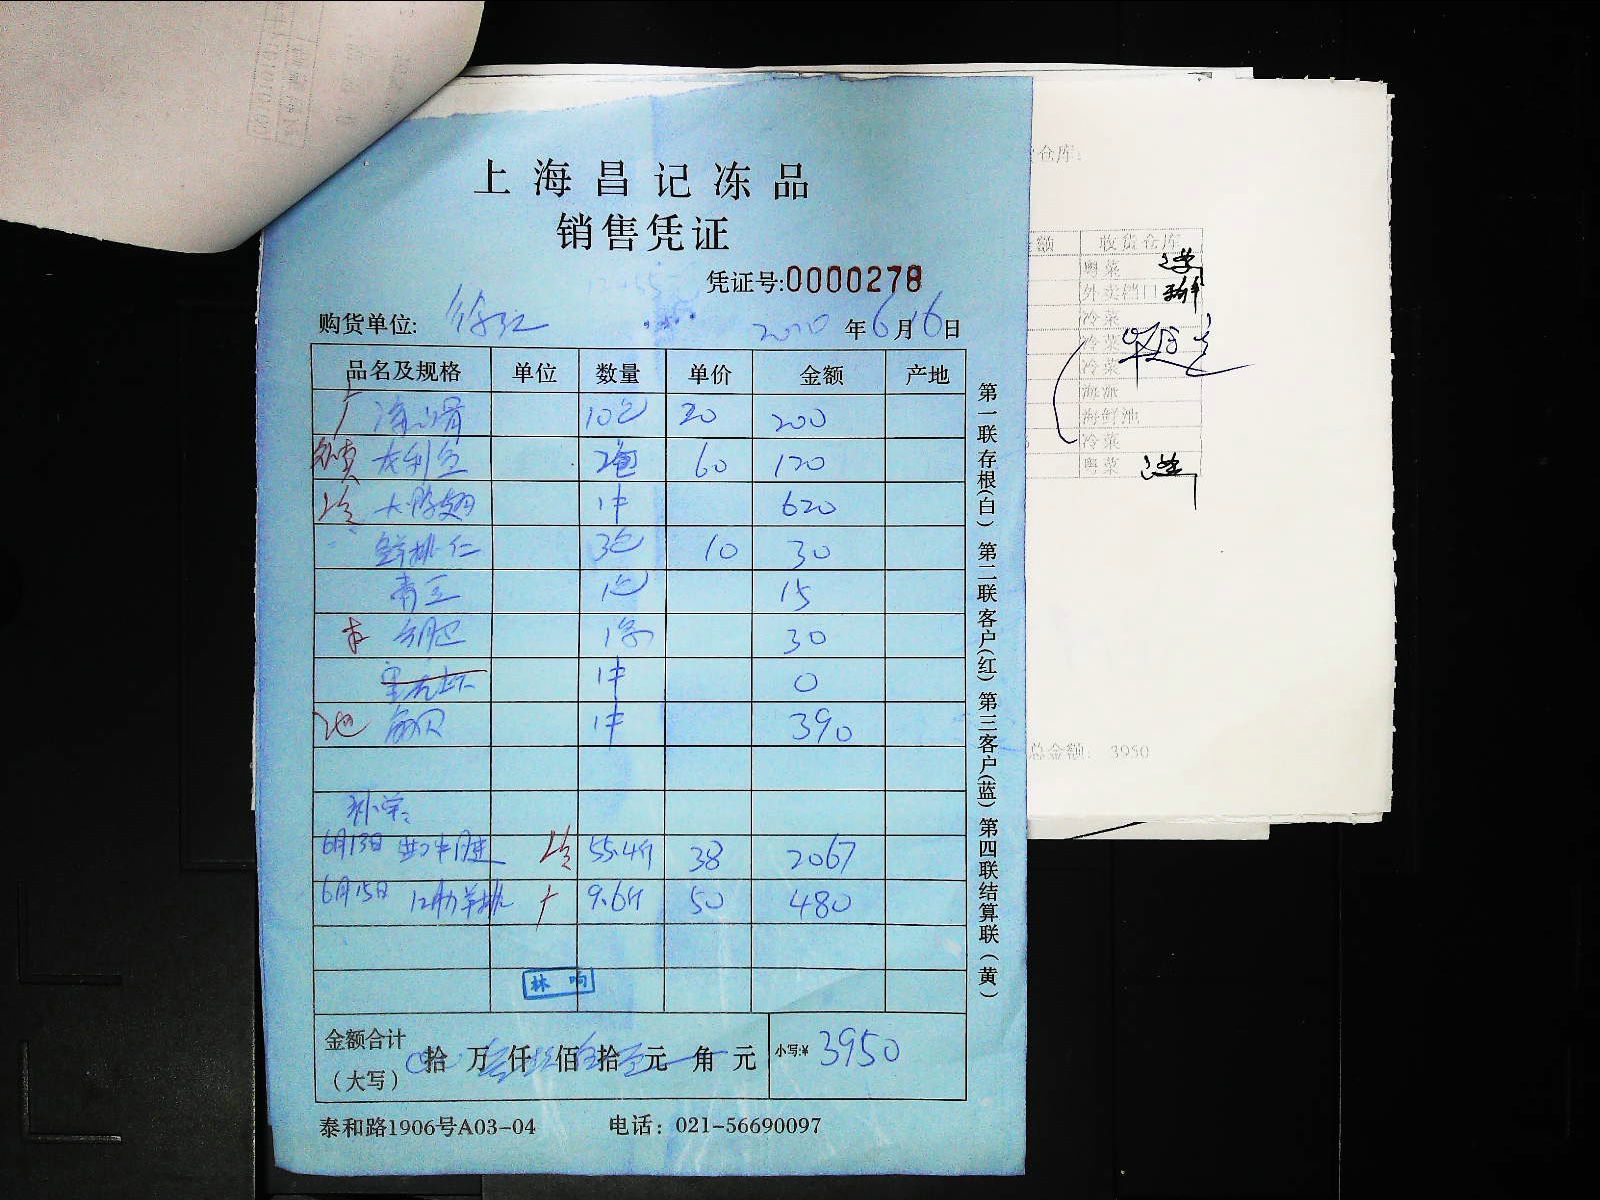 上海昌记冻品
销售凭证
凭证号:0000278
购货单位: 徐汇 2020年6月16日
品名及规格 单位 数量 单价 金额 产地
10包 20 200
外卖 2包 60 120
冷 大鸭翅 1件 620
鲜桃仁 3包 10 30
青豆 1包 15
1条 30
1件 0
池 1件 390
补单:
6月13日 牛腱 冷 55.4斤 38 2067
6月15日 12肋羊排 9.6斤 50 480
林响
金额合计
(大写) 拾 万 仟 佰 拾 元 角 元 小写:¥ 3950
泰和路1906号A03-04 电话：021-56690097
第一联存根(白) 第二联客户(红) 第三客户(蓝) 第四联结算联(黄)
仓库:
额 收货仓库
粤菜
外卖档口
冷菜
冷菜
冷菜
海派
海鲜池
冷菜
粤菜
总金额: 3950